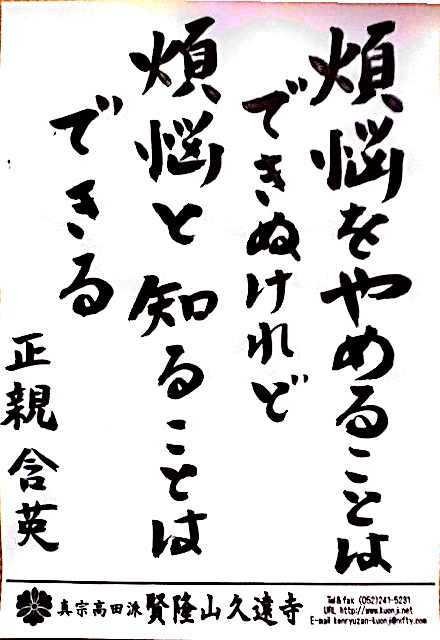 煩悩をやめることは
できぬけれど
煩悩と知ることは
できる
正親含英
真宗高田派 賢隆山久遠寺
Tel&fax (052)241-5231
URL http://www.kuonji.net
E-mail kenryuzan-kuonji@nifty.com